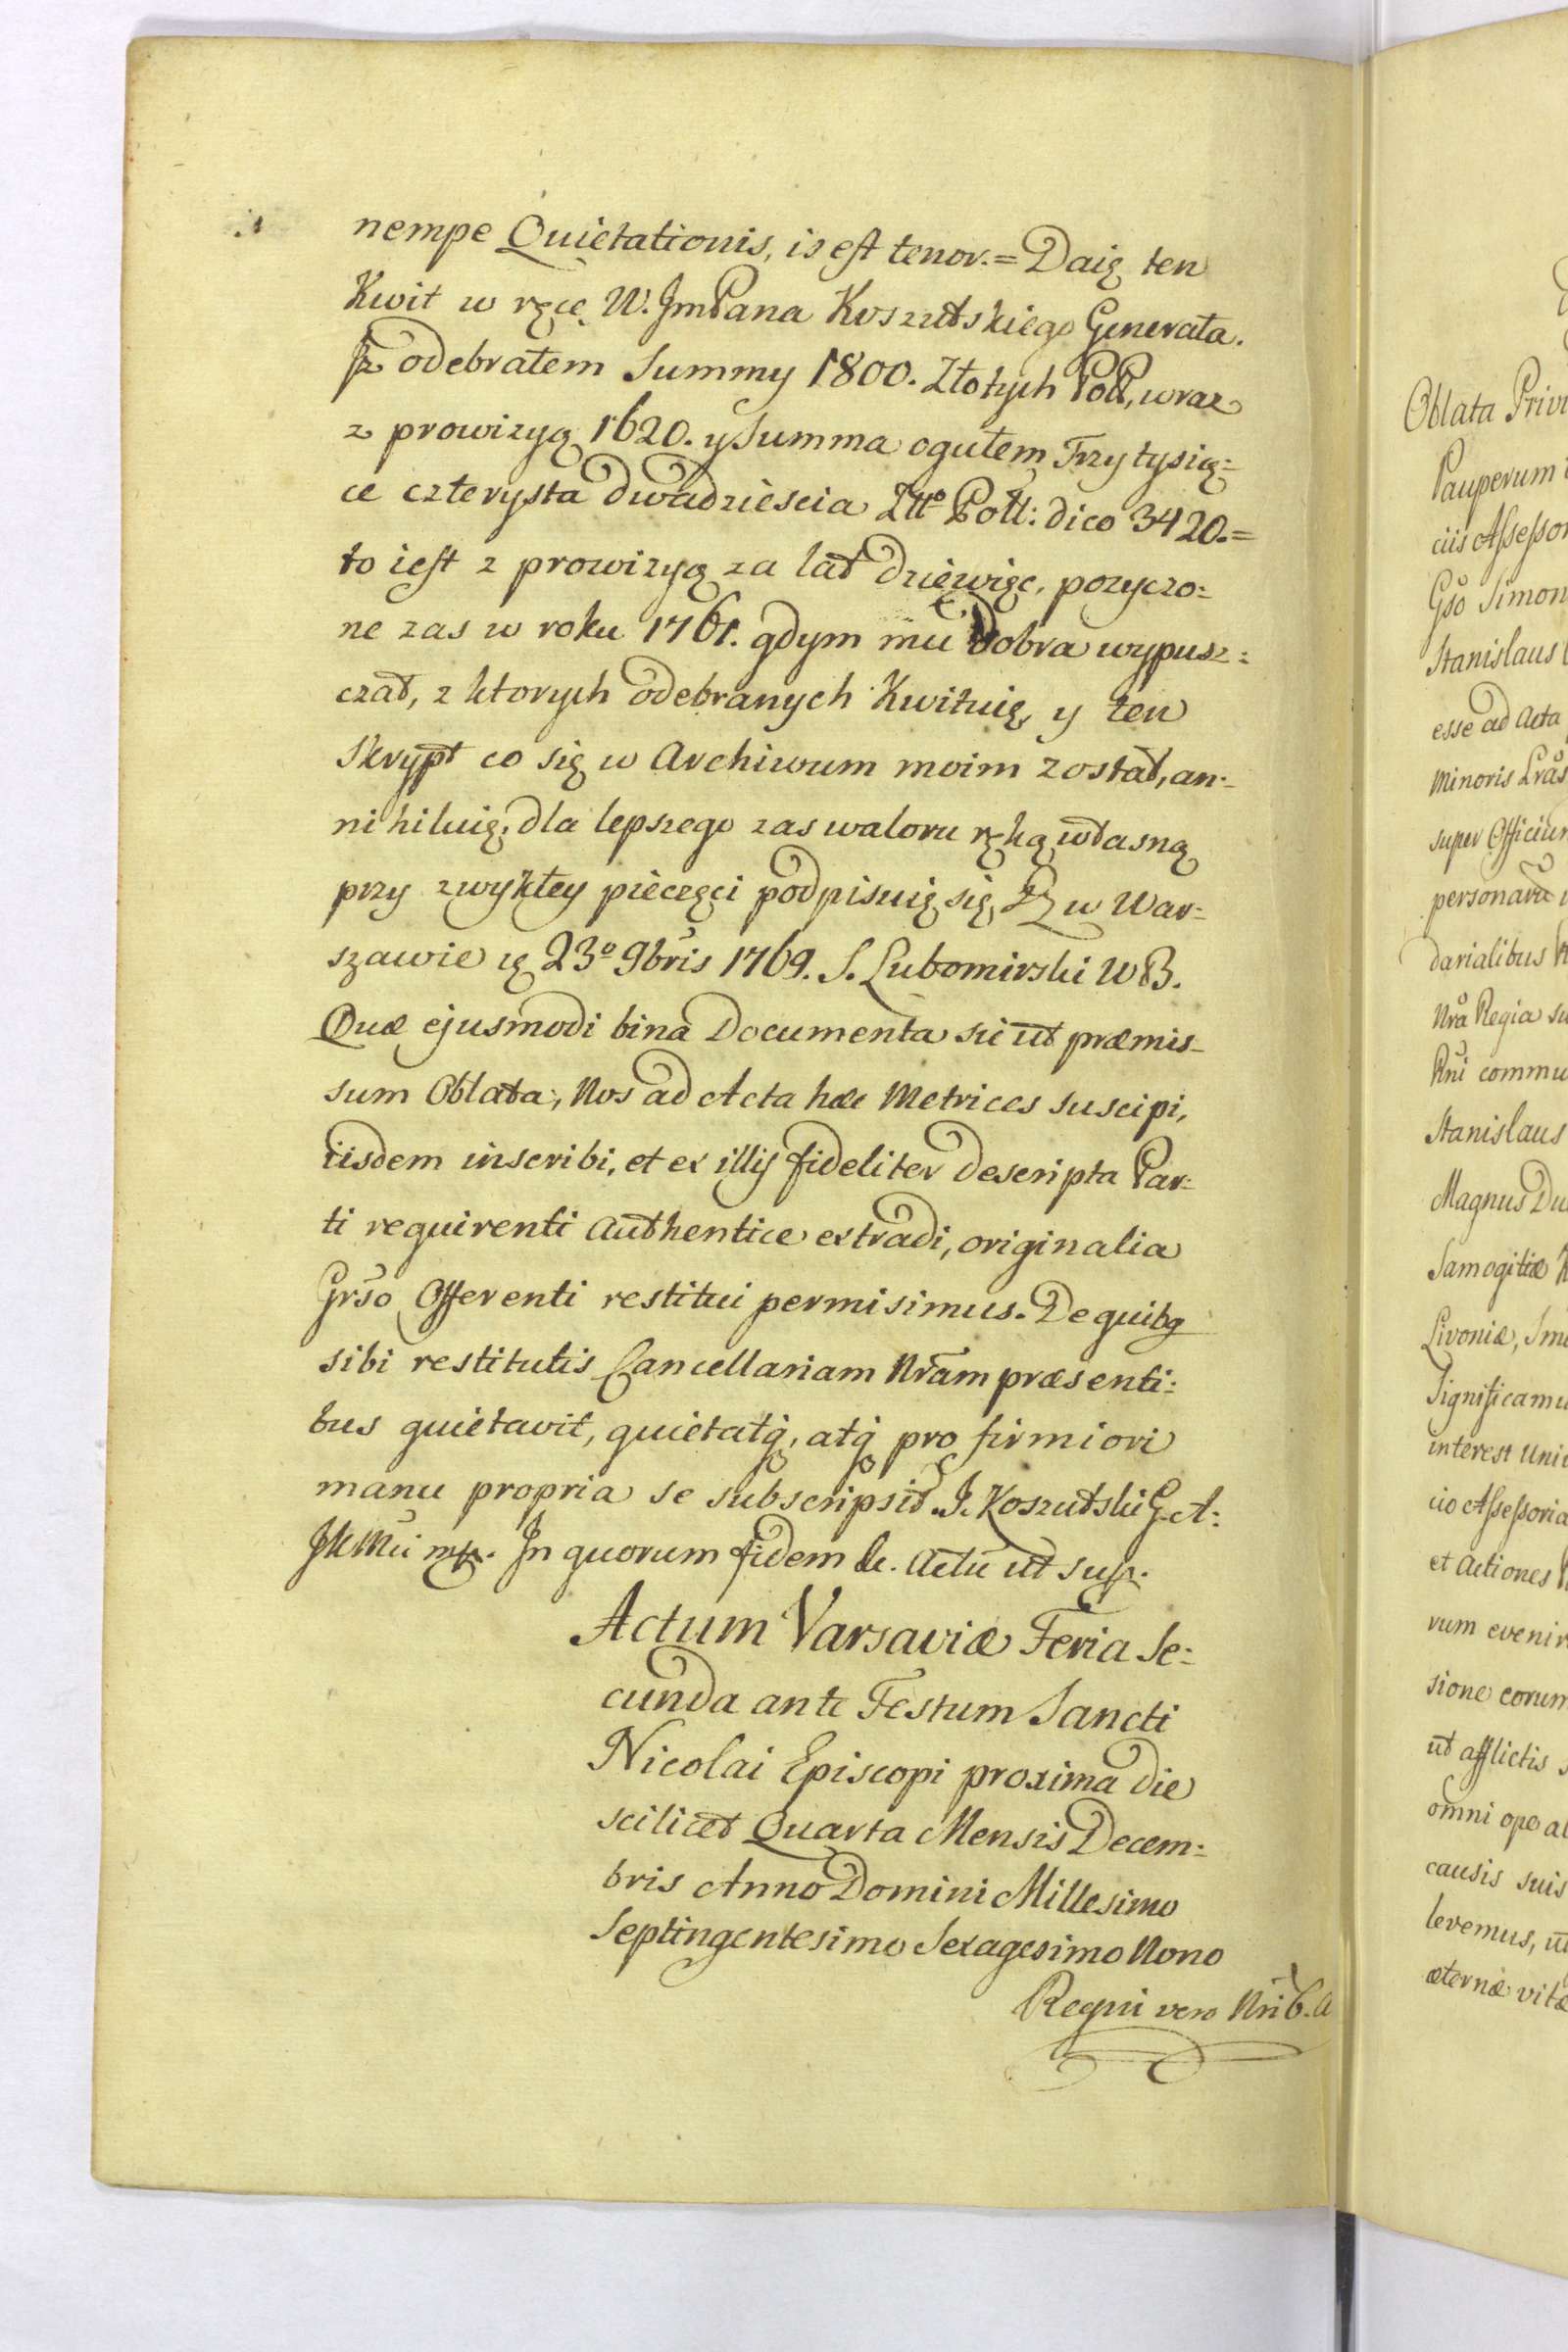 nempe Quietationis, is est tenor.= Daię ten
Kwit w ręce W. JmPana Koszutskiego Generała.
Jż odebrałem Summy 1800. Złotych Poll, wraz
z prowizyą 1620. y Summa ogułem Trzy tysią=
ce czterysta dwadziescia Złło Poll: dico 3420.=
to iest z prowizyą za lat dziewięc, pozyczo=
ne zas w roku 1761. gdym mu Dobra wypusz=
czał, z ktorych odebranych Kwituię, y ten
Skrypt co się w Archiwum moim został, an=
nihiluię, dla lepszego zas waloru ręką własną
przy zwykłey pieczęci podpisuię się, w War=
szawie 23o 9bris 1769. S. Lubomirski WB.
Quæ ejusmodi bina Documenta sicut præmis=
sum Oblata, Nos ad Acta hæc Metrices suscipi,
iisdem inscribi, et ex illis fideliter descripta Par=
ti requirenti authentice extradi, originalia
Grso Offerenti restitui permisimus. De quibq
sibi restitutis Cancellariam Nram præsenti=
bus quietavit, quietatq, atq pro firmiori
manu propria se subscripsit J. Koszutski G. A:
JKMci mp. In quorum fidem &c. Actu ut sup.
Actum Varsaviæ Feria Se=
cunda ante Festum Sancti
Nicolai Episcopi proxima die
scilicet Quarta Mensis Decem=
bris Anno Domini Millesimo
Septingentesimo Sexagesimo Nono
Regni vero Nri 6. A
Oblata Privi
Pauperum
ciis Assessor
Gso Simon
Stanislaus
esse ad Acta
Minoris Lras
super Officium
personaru
darialibus
Nra Regia su
Rni commu
Stanislaus
Magnus Du
Samogitiæ
Livoniæ, Smo
Significamu
interest Uni
cio Assessoria
et Actiones
rum evenir
sione eorum
ut afflictis s
omni ope al
causis suis
levemus, ut
æternæ vitæ